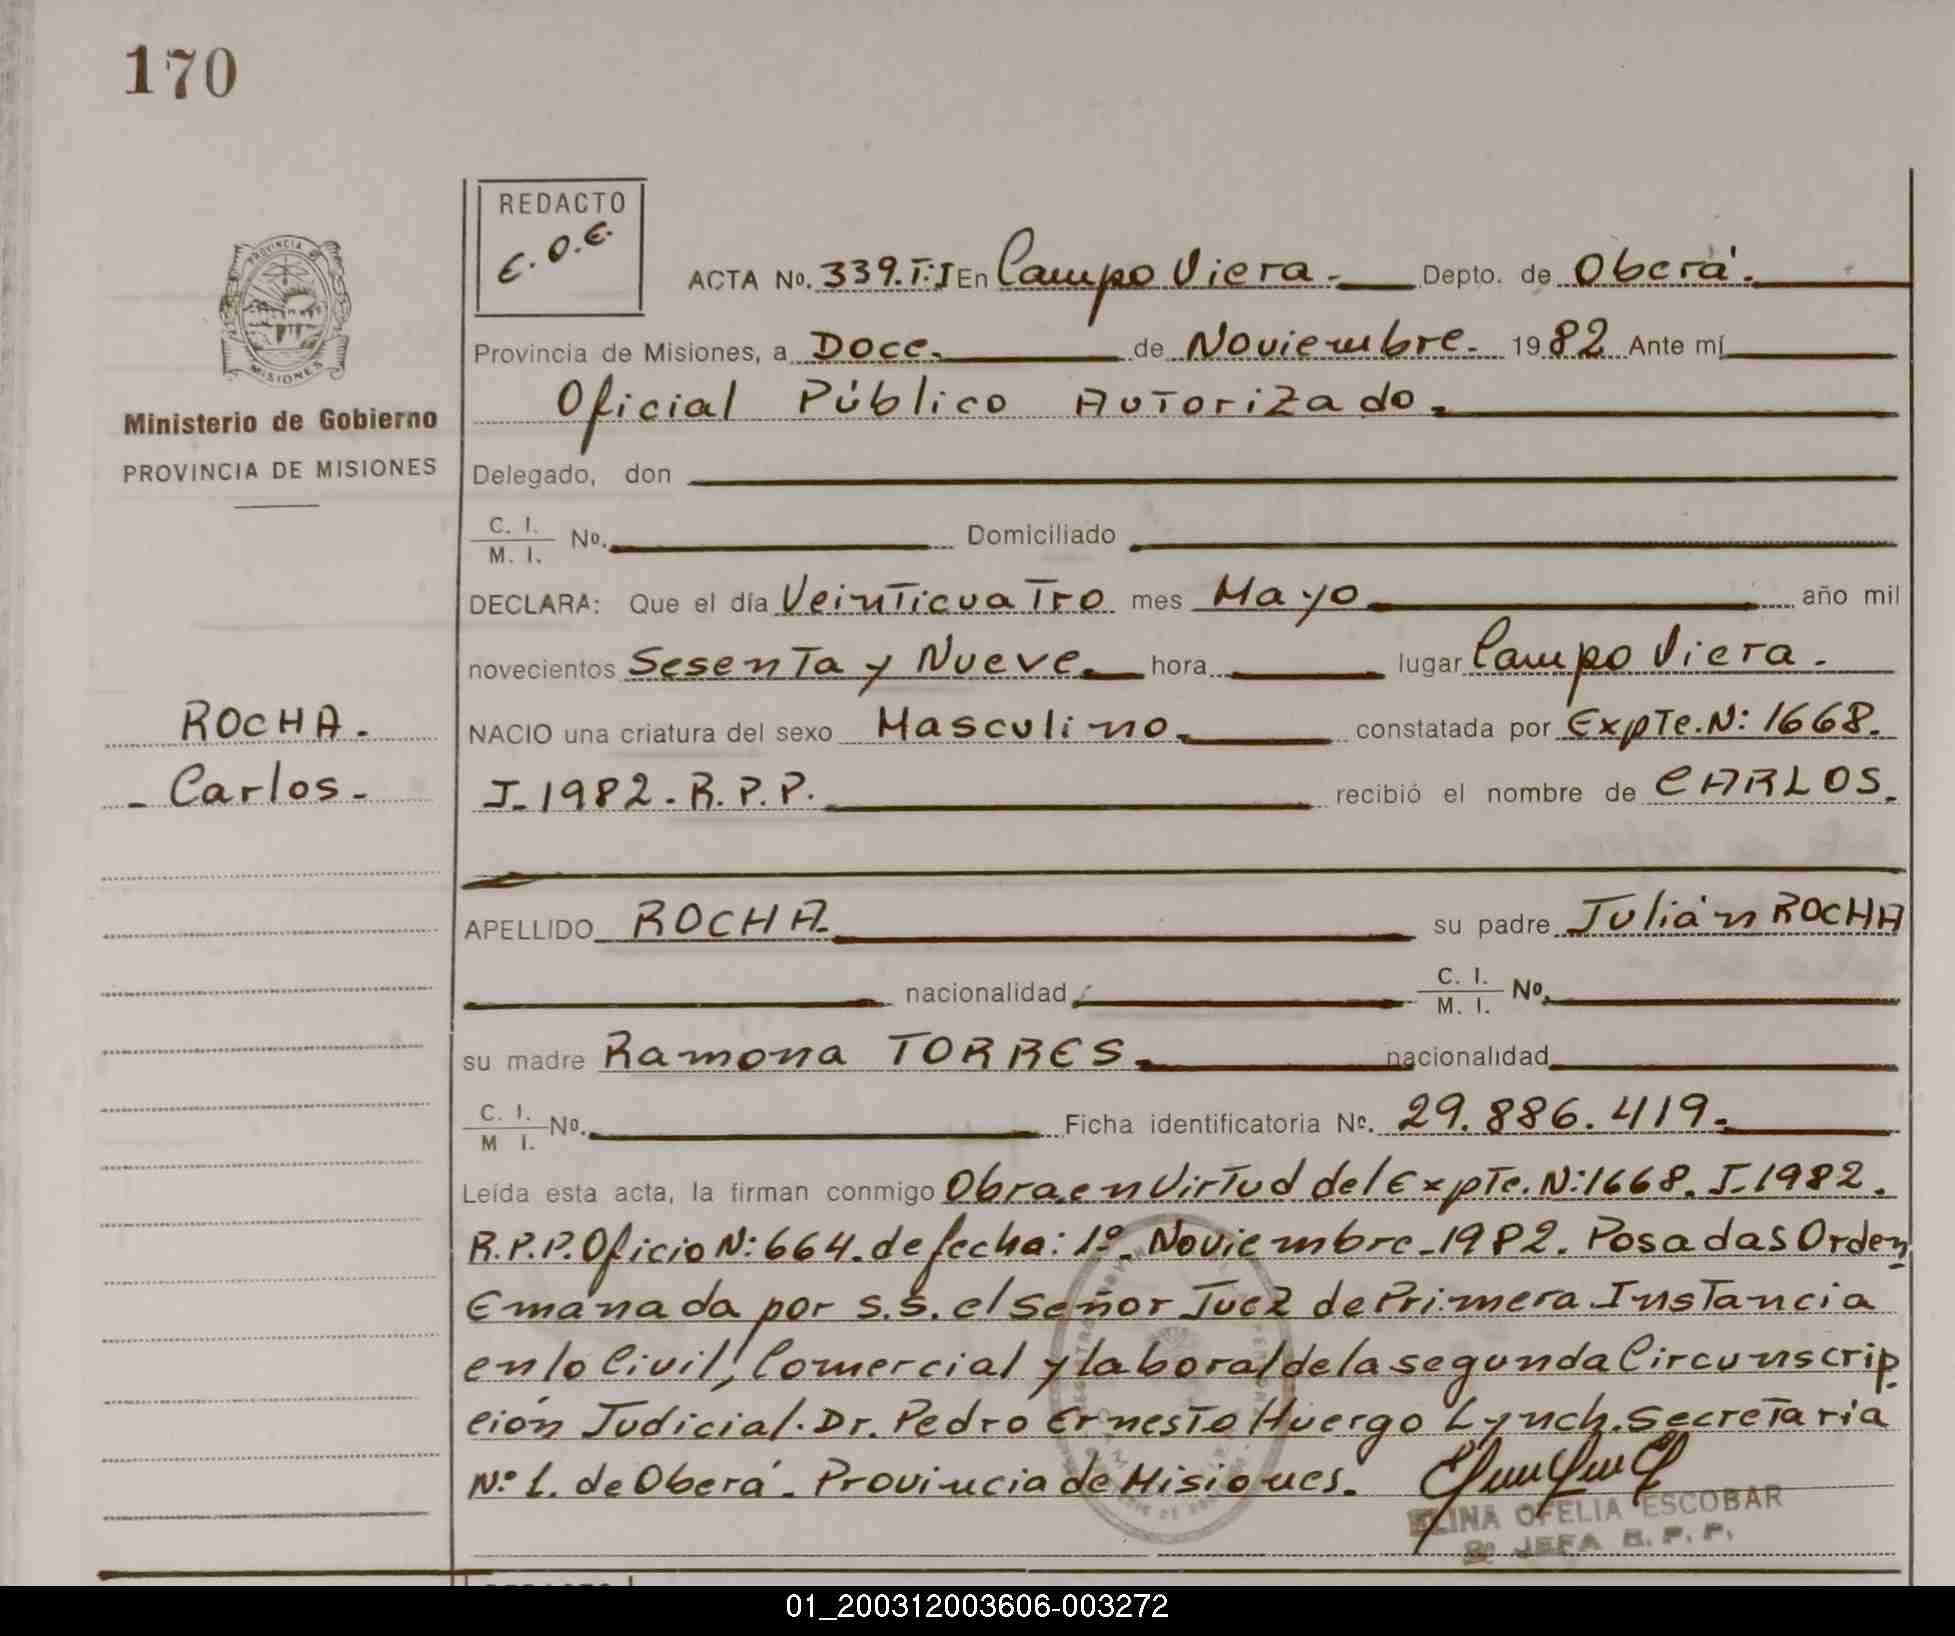 170
REDACTO
E.O.E.
ACTA No. 339.T:I En Campo Viera.- Depto. de Oberá.
Provincia de Misiones, a Doce. de Noviembre. 1982 Ante mí
Oficial Público Autorizado.
Ministerio de Gobierno
PROVINCIA DE MISIONES
Delegado, don
C. I.
M. I. No. Domiciliado
DECLARA: Que el día Veinticuatro mes Mayo año mil
novecientos Sesenta y Nueve. hora lugar Campo Viera.
ROCHA.
NACIO una criatura del sexo Masculino. constatada por Expte. N: 1668.
- Carlos -
I-1982-R.P.P. recibió el nombre de CARLOS.
APELLIDO ROCHA. su padre Julián ROCHA
nacionalidad C. I.
M. I. No.
su madre Ramona TORRES. nacionalidad
C. I.
M I. No. Ficha identificatoria No. 29.886.419.
Leída esta acta, la firman conmigo Obra en Virtud del Expte. N:1668. I-1982.
R.P.P. Oficio N:664. de fecha: 1º. Noviembre-1982. Posadas Orden
Emanada por S.S. el Señor Juez de Primera Instancia
en lo Civil, Comercial y laboral de la segunda Circunscrip
ción Judicial. Dr. Pedro Ernesto Huergo Lynch. Secretaria
Nº 1. de Oberá. Provincia de Misiones.
ELINA OFELIA ESCOBAR
JEFA R. P. P.
01_200312003606-003272